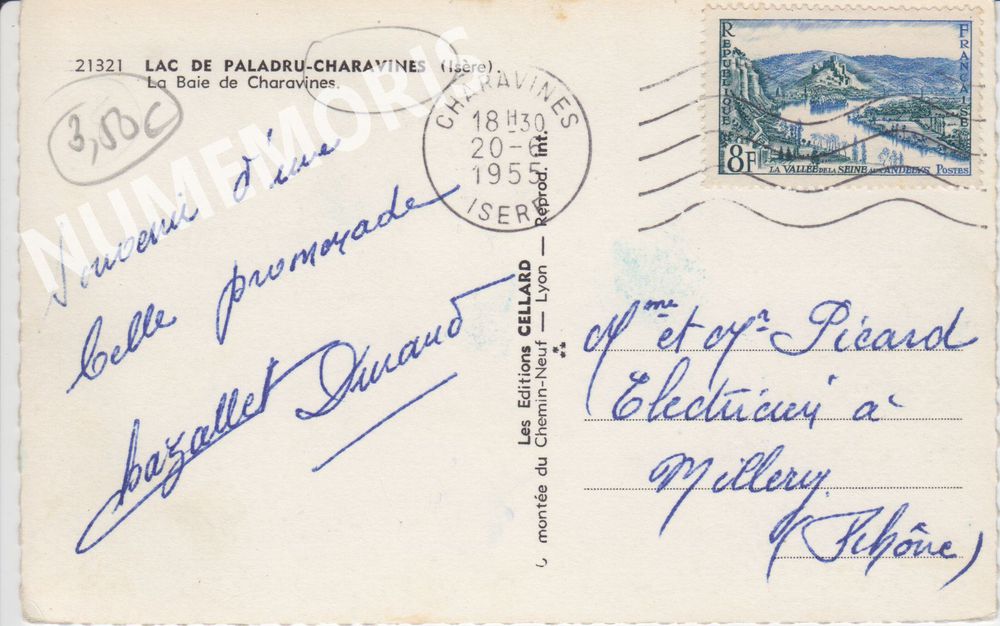 21321 LAC DE PALADRU-CHARAVINES (Isère)
La Baie de Charavines.
3,50€
NUMEMORIS
Souvenir d'une
belle promenade
Durand
CHARAVINES
18H30
20-6
1955
ISERE
REPUBLIQUE
FRANCAISE
8F
LA VALLÉE DE LA SEINE AUX ANDELYS POSTES
Les Editions CELLARD
montée du Chemin-Neuf — Lyon — Reprod. int.
Mme et Mr Picard
Electricien à
Millery
(Rhône)